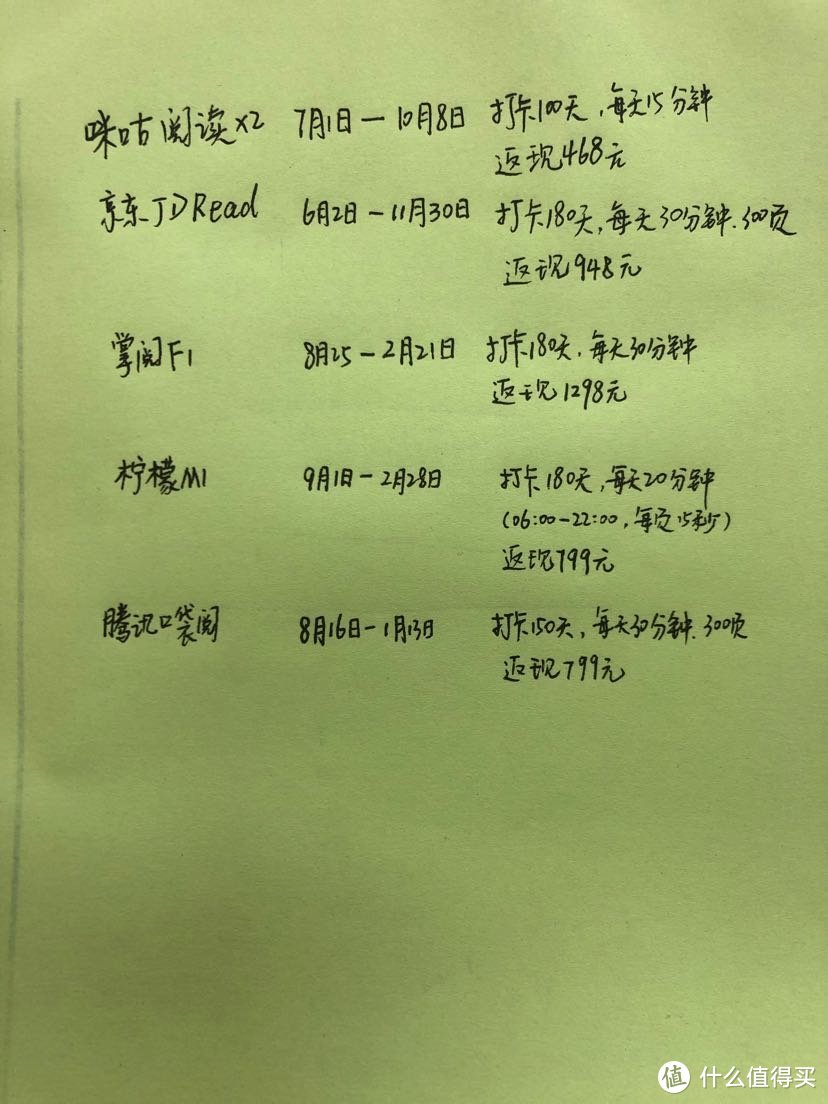 咪咕阅读x2 7月1日—10月8日 打卡100天,每天15分钟
返现468元
京东JDRead 6月2日—11月30日 打卡180天,每天30分钟.300页
返现948元
掌阅F1 8月25—2月21日 打卡180天,每天30分钟
返现1298元
柠檬M1 9月1日—2月28日 打卡180天,每天20分钟
(06:00-22:00,每页15秒)
返现799元
腾讯口袋阅 8月16日—1月13日 打卡150天,每天30分钟.300页
返现799元
值 什么值得买